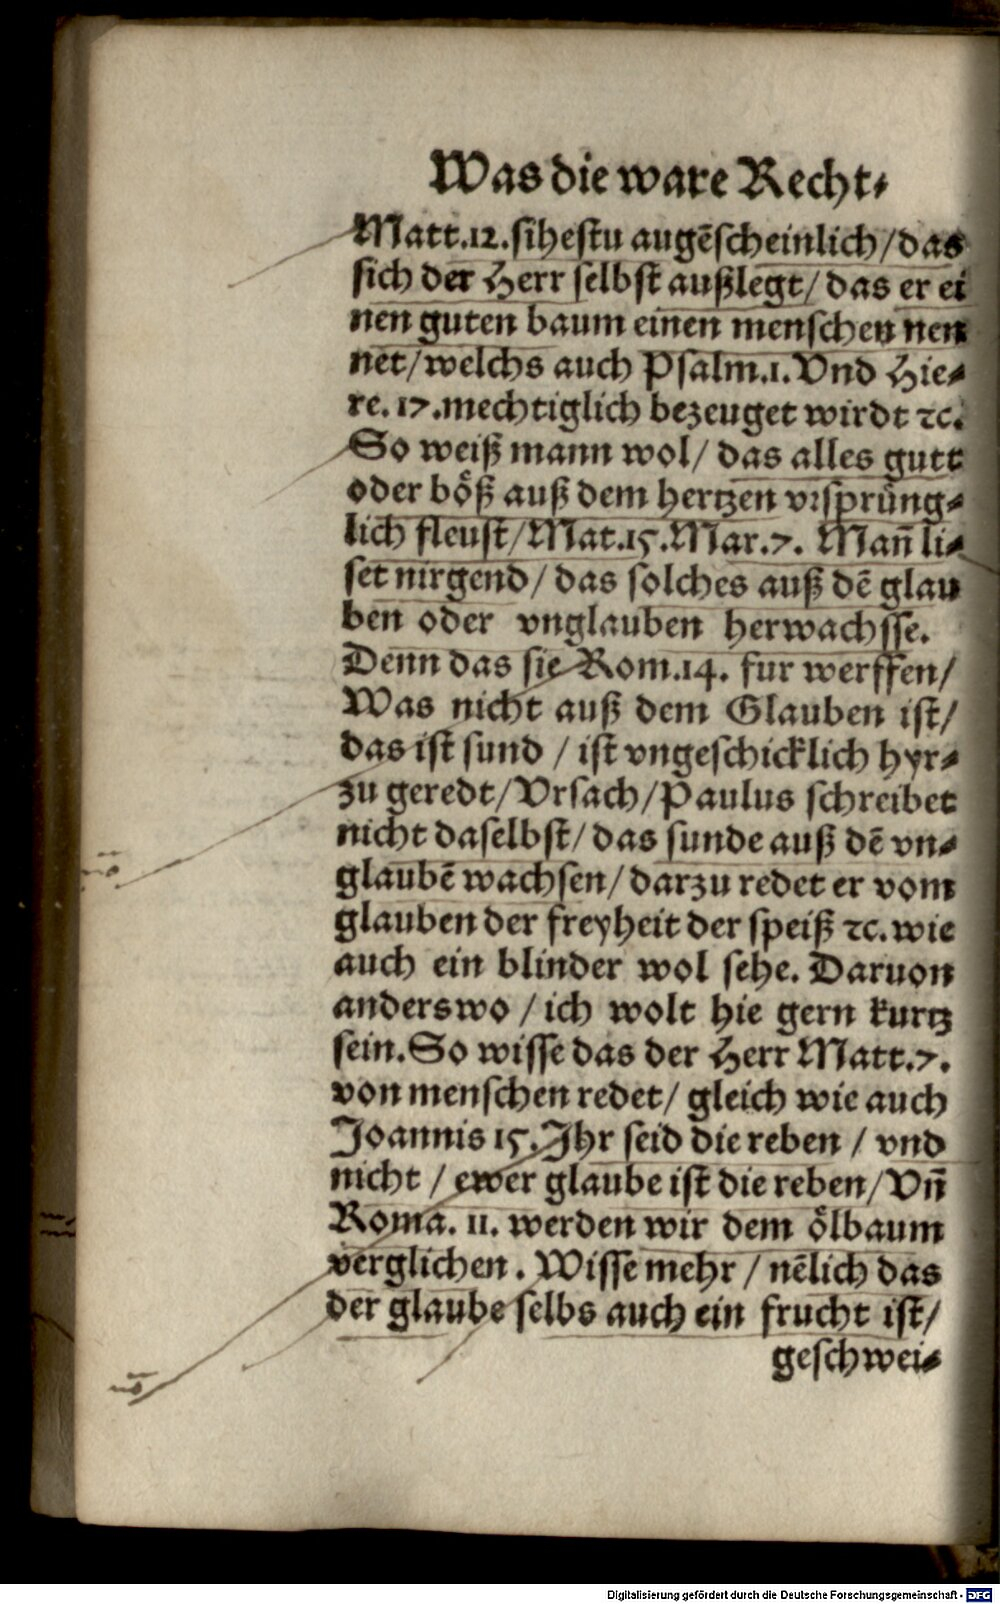 Was die ware Recht⸗
Matt.12.sihestu augēscheinlich/das
sich der Herr selbst außlegt/das er ei
nen guten baum einen menschen nen
net/welchs auch Psalm.1. Vnd Hie⸗
re.17.mechtiglich bezeuget wirdt ꝛc.
So weiß mann wol/ das alles gutt
oder böß auß dem hertzen vrsprüng⸗
lich fleust/Mat.15.Mar.7. Mañ li⸗
set nirgend/das solches auß dē glau
ben oder vnglauben herwachsse.
Denn das sie Rom.14. fur werffen/
Was nicht auß dem Glauben ist/
das ist sund / ist vngeschicklich hyr⸗
zu geredt/Vrsach/Paulus schreibet
nicht daselbst/das sunde auß dē vn⸗
glaubē wachsen/darzu redet er vom
glauben der freyheit der speiß ꝛc.wie
auch ein blinder wol sehe. Daruon
anderswo / ich wolt hie gern kurtz
sein.So wisse das der Herr Matt.7.
von menschen redet/ gleich wie auch
Joannis 15.Jhr seid die reben / vnd
nicht / ewer glaube ist die reben/Vñ
Roma. 11. werden wir dem ölbaum
verglichen. Wisse mehr / nēlich das
der glaube selbs auch ein frucht ist/
geschwei⸗
Digitalisierung gefördert durch die Deutsche Forschungsgemeinschaft - DFG